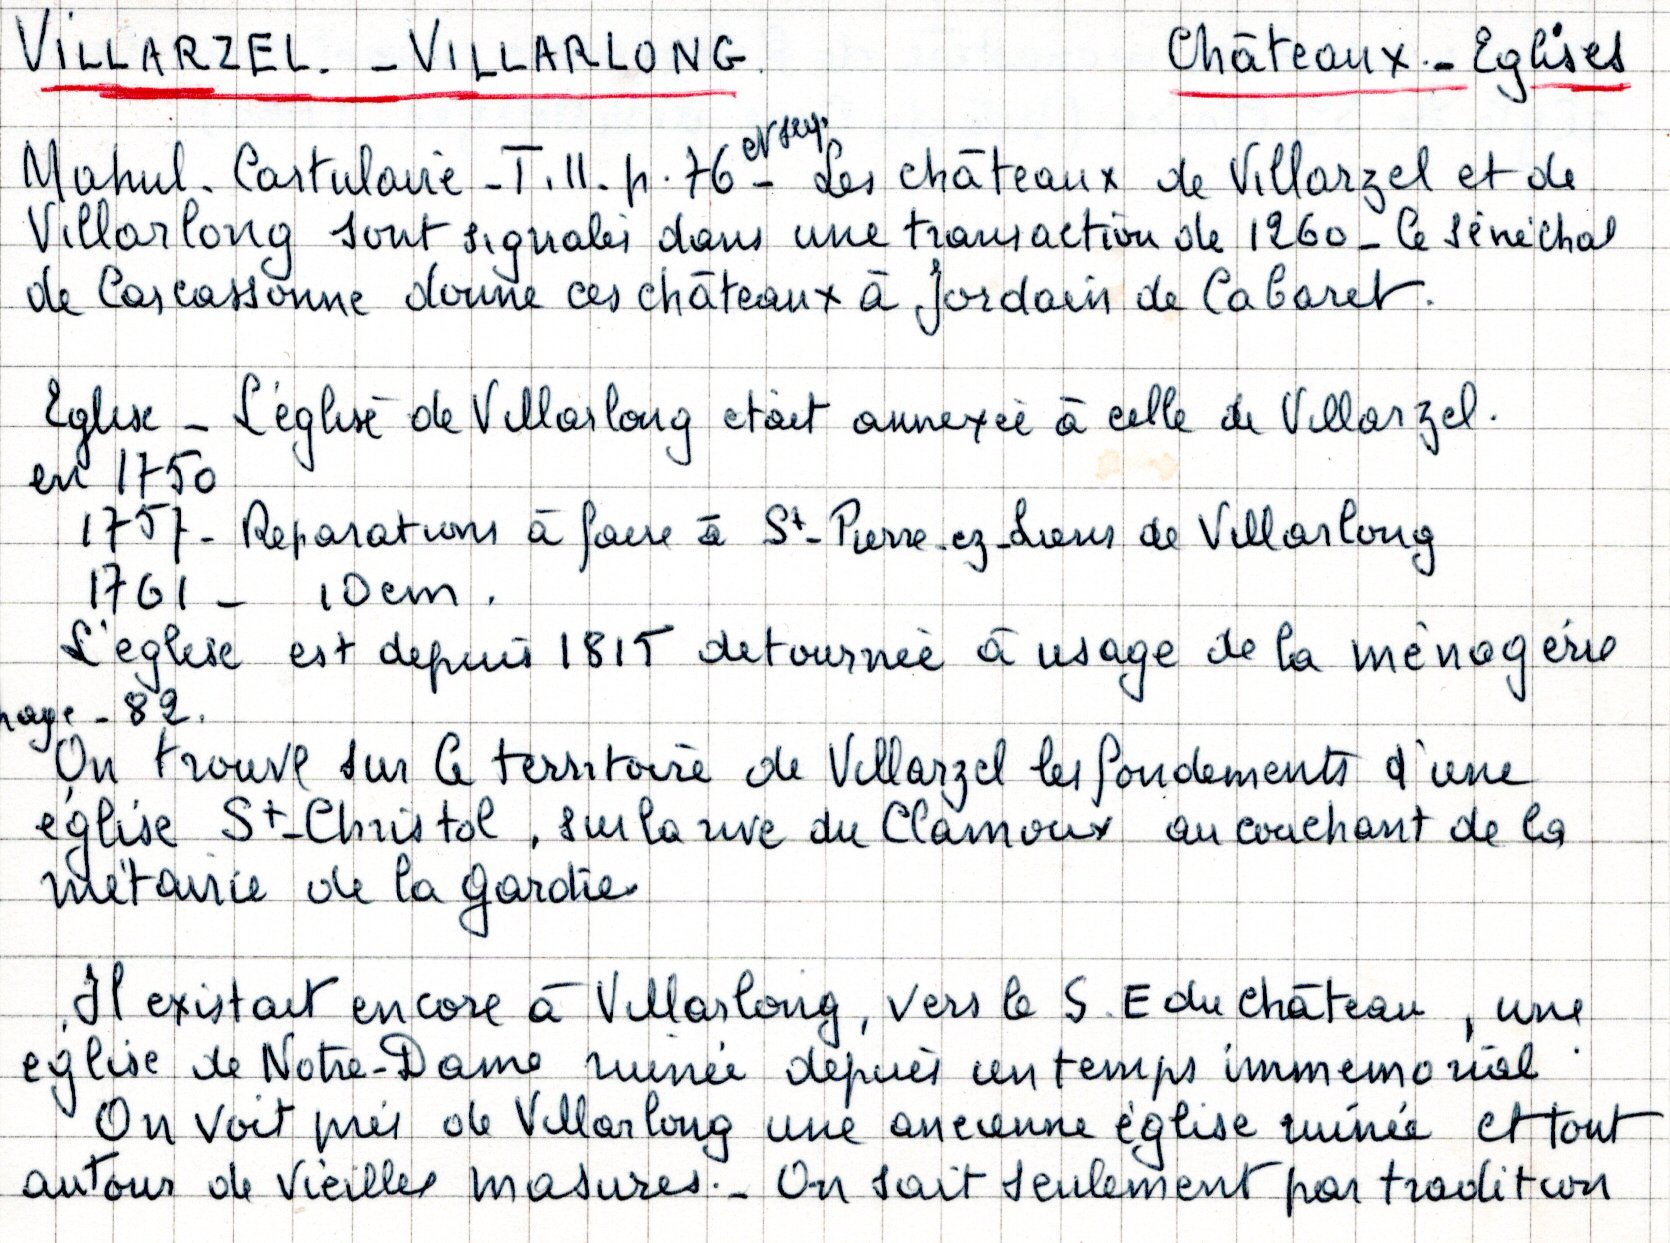 VILLARZEL. - VILLARLONG. Châteaux. - Eglises
Mahul. Cartulaire - T. II. p. 76 et seq. - Les châteaux de Villarzel et de
Villarlong sont signalés dans une transaction de 1260 - le sénéchal
de Carcassonne donne ces châteaux à Jordain de Cabaret.
Eglise - L'église de Villarlong était annexée à celle de Villarzel.
en 1750
1757 - Reparations à faire à St-Pierre-ez-Liens de Villarlong
1761 - idem.
L'église est depuis 1815 detournée à usage de la ménagérie
page - 82.
On trouve sur le territoire de Villarzel les fondements d'une
église St-Christol, sur la rive du Clamoux au couchant de la
métairie de la Gardie.
Il existait encore à Villarlong, vers le S.E du château, une
eglise de Notre-Dame ruinée depuis un temps immemorial.
On voit près de Villarlong une ancienne église ruinée et tout
autour de vieilles masures. - On sait seulement par tradition